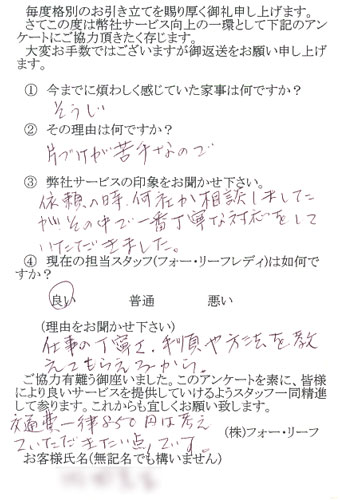 毎度格別のお引き立てを賜り厚く御礼申し上げます。
さてこの度は弊社サービス向上の一環として下記のアン
ケートにご協力頂きたく存じます。
大変お手数ではございますが御返送をお願い申し上げ
ます。
① 今までに煩わしく感じていた家事は何ですか？
そうじ
② その理由は何ですか？
片づけが苦手なので
③ 弊社サービスの印象をお聞かせ下さい。
依頼の時、何社か相談しました
が、その中で一番丁寧な対応をして
いただきました。
④ 現在の担当スタッフ(フォー・リーフレディ)は如何で
すか？
良い 普通 悪い
(理由をお聞かせ下さい)
仕事の丁寧さ、手順や方法を教
えてもらえるから。
ご協力有難う御座いました。このアンケートを素に、皆様
により良いサービスを提供していけるようスタッフ一同精進
して参ります。これからも宜しくお願い致します。
交通費一律850円は考え
ていただきたい点です。
(株)フォー・リーフ
お客様氏名(無記名でも構いません)